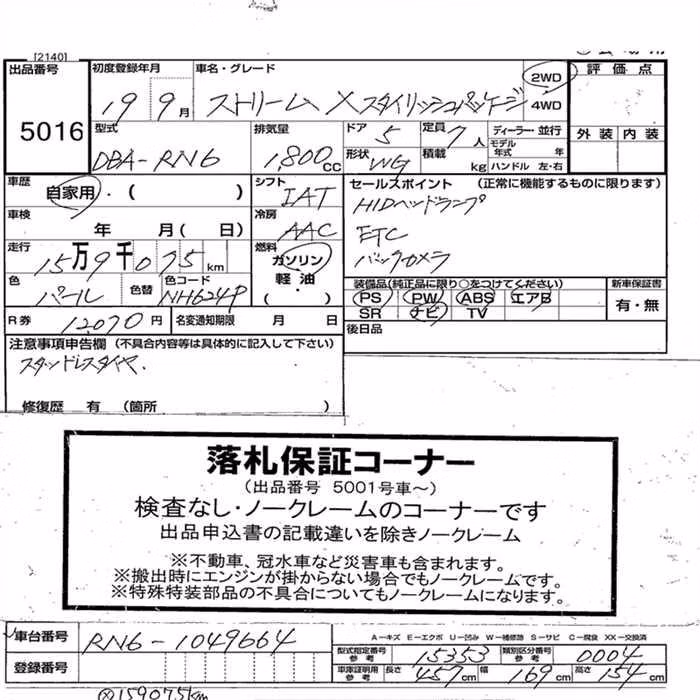 [2140]
出品番号 5016
初度登録年月 19 9月
車名・グレード ストリーム X スタイリッシュパッケージ
2WD 4WD
評価点
外装 内装
型式 DBA-RN6
排気量 1,800cc
ドア 5
定員 7人
形状 WG
積載 kg
ディーラー・並行
モデル年式 年
ハンドル 左・右
車歴 自家用・( )
シフト IAT
セールスポイント (正常に機能するものに限ります)
HIDヘッドランプ
ETC
バックカメラ
車検 年 月( 日)
冷房 AAC
走行 15万9千075km
燃料 ガソリン 軽油 (・)
色 パール
色替
色コード NH624P
装備品(純正品に限り○をつけてください)
PS PW ABS エアB
SR ナビ TV
新車保証書
有・無
R券 12,070円
名変通知期限 月 日
後日品
注意事項申告欄 (不具合内容等は具体的に記入して下さい)
スタッドレスタイヤ.
修復歴 有 (箇所 )
落札保証コーナー
(出品番号 5001号車～)
検査なし・ノークレームのコーナーです
出品申込書の記載違いを除きノークレーム
※不動車、冠水車など災害車も含まれます。
※搬出時にエンジンが掛からない場合でもノークレームです。
※特殊特装部品の不具合についてもノークレームになります。
車台番号 RN6-1049664
登録番号
A-キズ E-エクボ U-凹み W-補修跡 S-サビ C-腐食 XX-交換済
型式指定番号 参考 15353
類別区分番号 参考 0004
車庫証明用 参考 長さ 457cm 幅 169cm 高さ 154cm
159075km